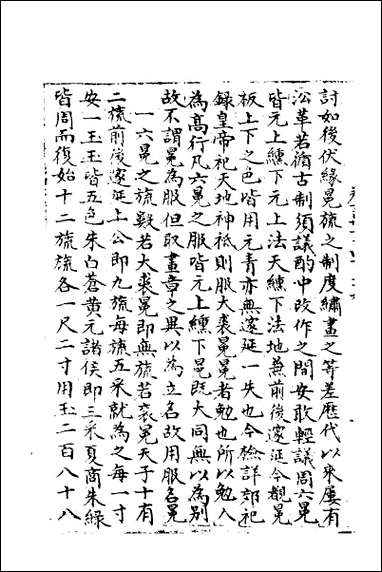 討如後伏緣冕旒之制度繡畫之等差歷代以來屢有
㳂革若循古制須議酌中改作之間安敢輕議周六冕
皆元上纁下元上法天纁下法地兼前後邃延今觀冕
板上下之色皆用元青亦無邃延一失也今檢詳郊祀
録皇帝祀天地神祇則服大裘冕冕者勉也所以勉入
為高行凡六冕之服皆元上纁下冕既大同無以為别
故不謂冕為服但取畫章之異以為立名故用服名冕
一六冕之旒數若大裘冕即無旒若衮冕天子十有
二旒前後邃延上公即九旒每旒五采就為之每一寸
安一玉玉皆五色朱白蒼黄元諸侯即三采夏商朱綠
皆周而復始十二旒旒各一尺二寸用玉二百八十八